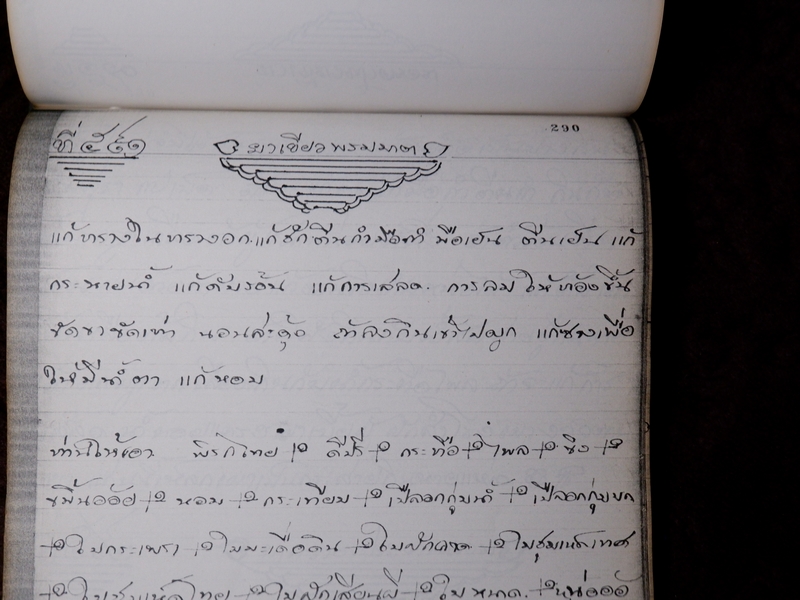 290
ที่ ๕๕๑
ยาเขียวพรมมาต
แก้ทรางในทรวงอก แก้ชักตีนกำมือกำ มือเย็น ตีนเย็น แก้
กระหายน้ำ แก้ดับรอ้น แก้การเสลด การลม ให้ทอ้งขึ้น
ขัดขาขัดเท่า นอนสะดุ้ง แก้ซางเพื่อ
ให้มีน้ำตา แก้หอบ
ท่านให้เอา พิรกไทย ๑ ดีปรี ๑ กระทือ ๑ ไพล ๑ ขิง ๑
ขมิ้นออ้ย ๑ หอม ๑ กระเทียม ๑ เปลือกกุ่มน้ำ ๑ เปลือกกุ่มบก
๑ ใบกระเพรา ๑ ใบมะเดื่อดิน ๑ ๑ ใบชุมเหดเทศ
๑ ใบชุมเหดไทย ๑ ๑ ใบหนาด ๑